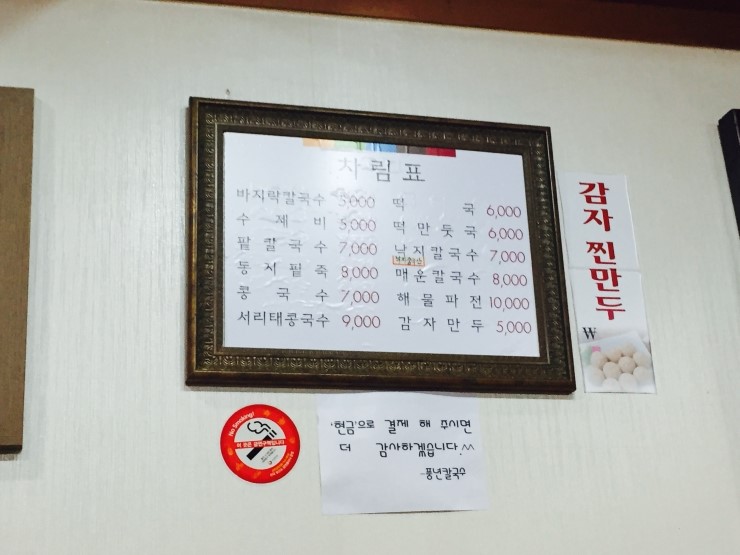 차림표
바지락칼국수 5,000
수제비 5,000
팥칼국수 7,000
동지팥죽 8,000
콩국수 7,000
서리태콩국수 9,000
떡국 6,000
떡만둣국 6,000
낙지칼국수 7,000
매운칼국수 8,000
해물파전 10,000
감자만두 5,000
감자 찐만두
W
No Smoking!
이 곳은 금연구역입니다
'현금'으로 결제 해 주시면
더 감사하겠습니다.^^
-풍년칼국수